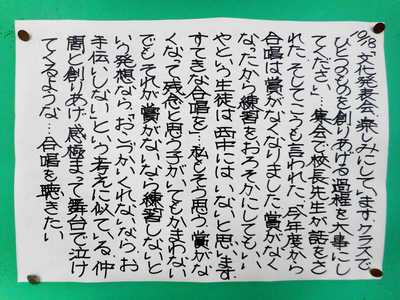 10/18「文化発表会、楽しみにしています。クラスで
ひとつのものを創りあげる過程を大事にし
てください」…集会で校長先生が話をさ
れた。そしてこうも言われた。「今年度から
合唱は賞がなくなりました。賞がなく
なったから練習をおろそかにしてもいい
やという生徒は西中にはいないと思います。
すてきな合唱を」…私もそう思う。賞がな
くなって残念と思う子がいてもかまわない
でも、それが賞がないなら練習しないと
いう発想なら、「おこづかいくれないなら、お
手伝いしない」という考えに似ている。仲
間と創りあげ、感極まって舞台で泣け
てくるような…合唱を聴きたい